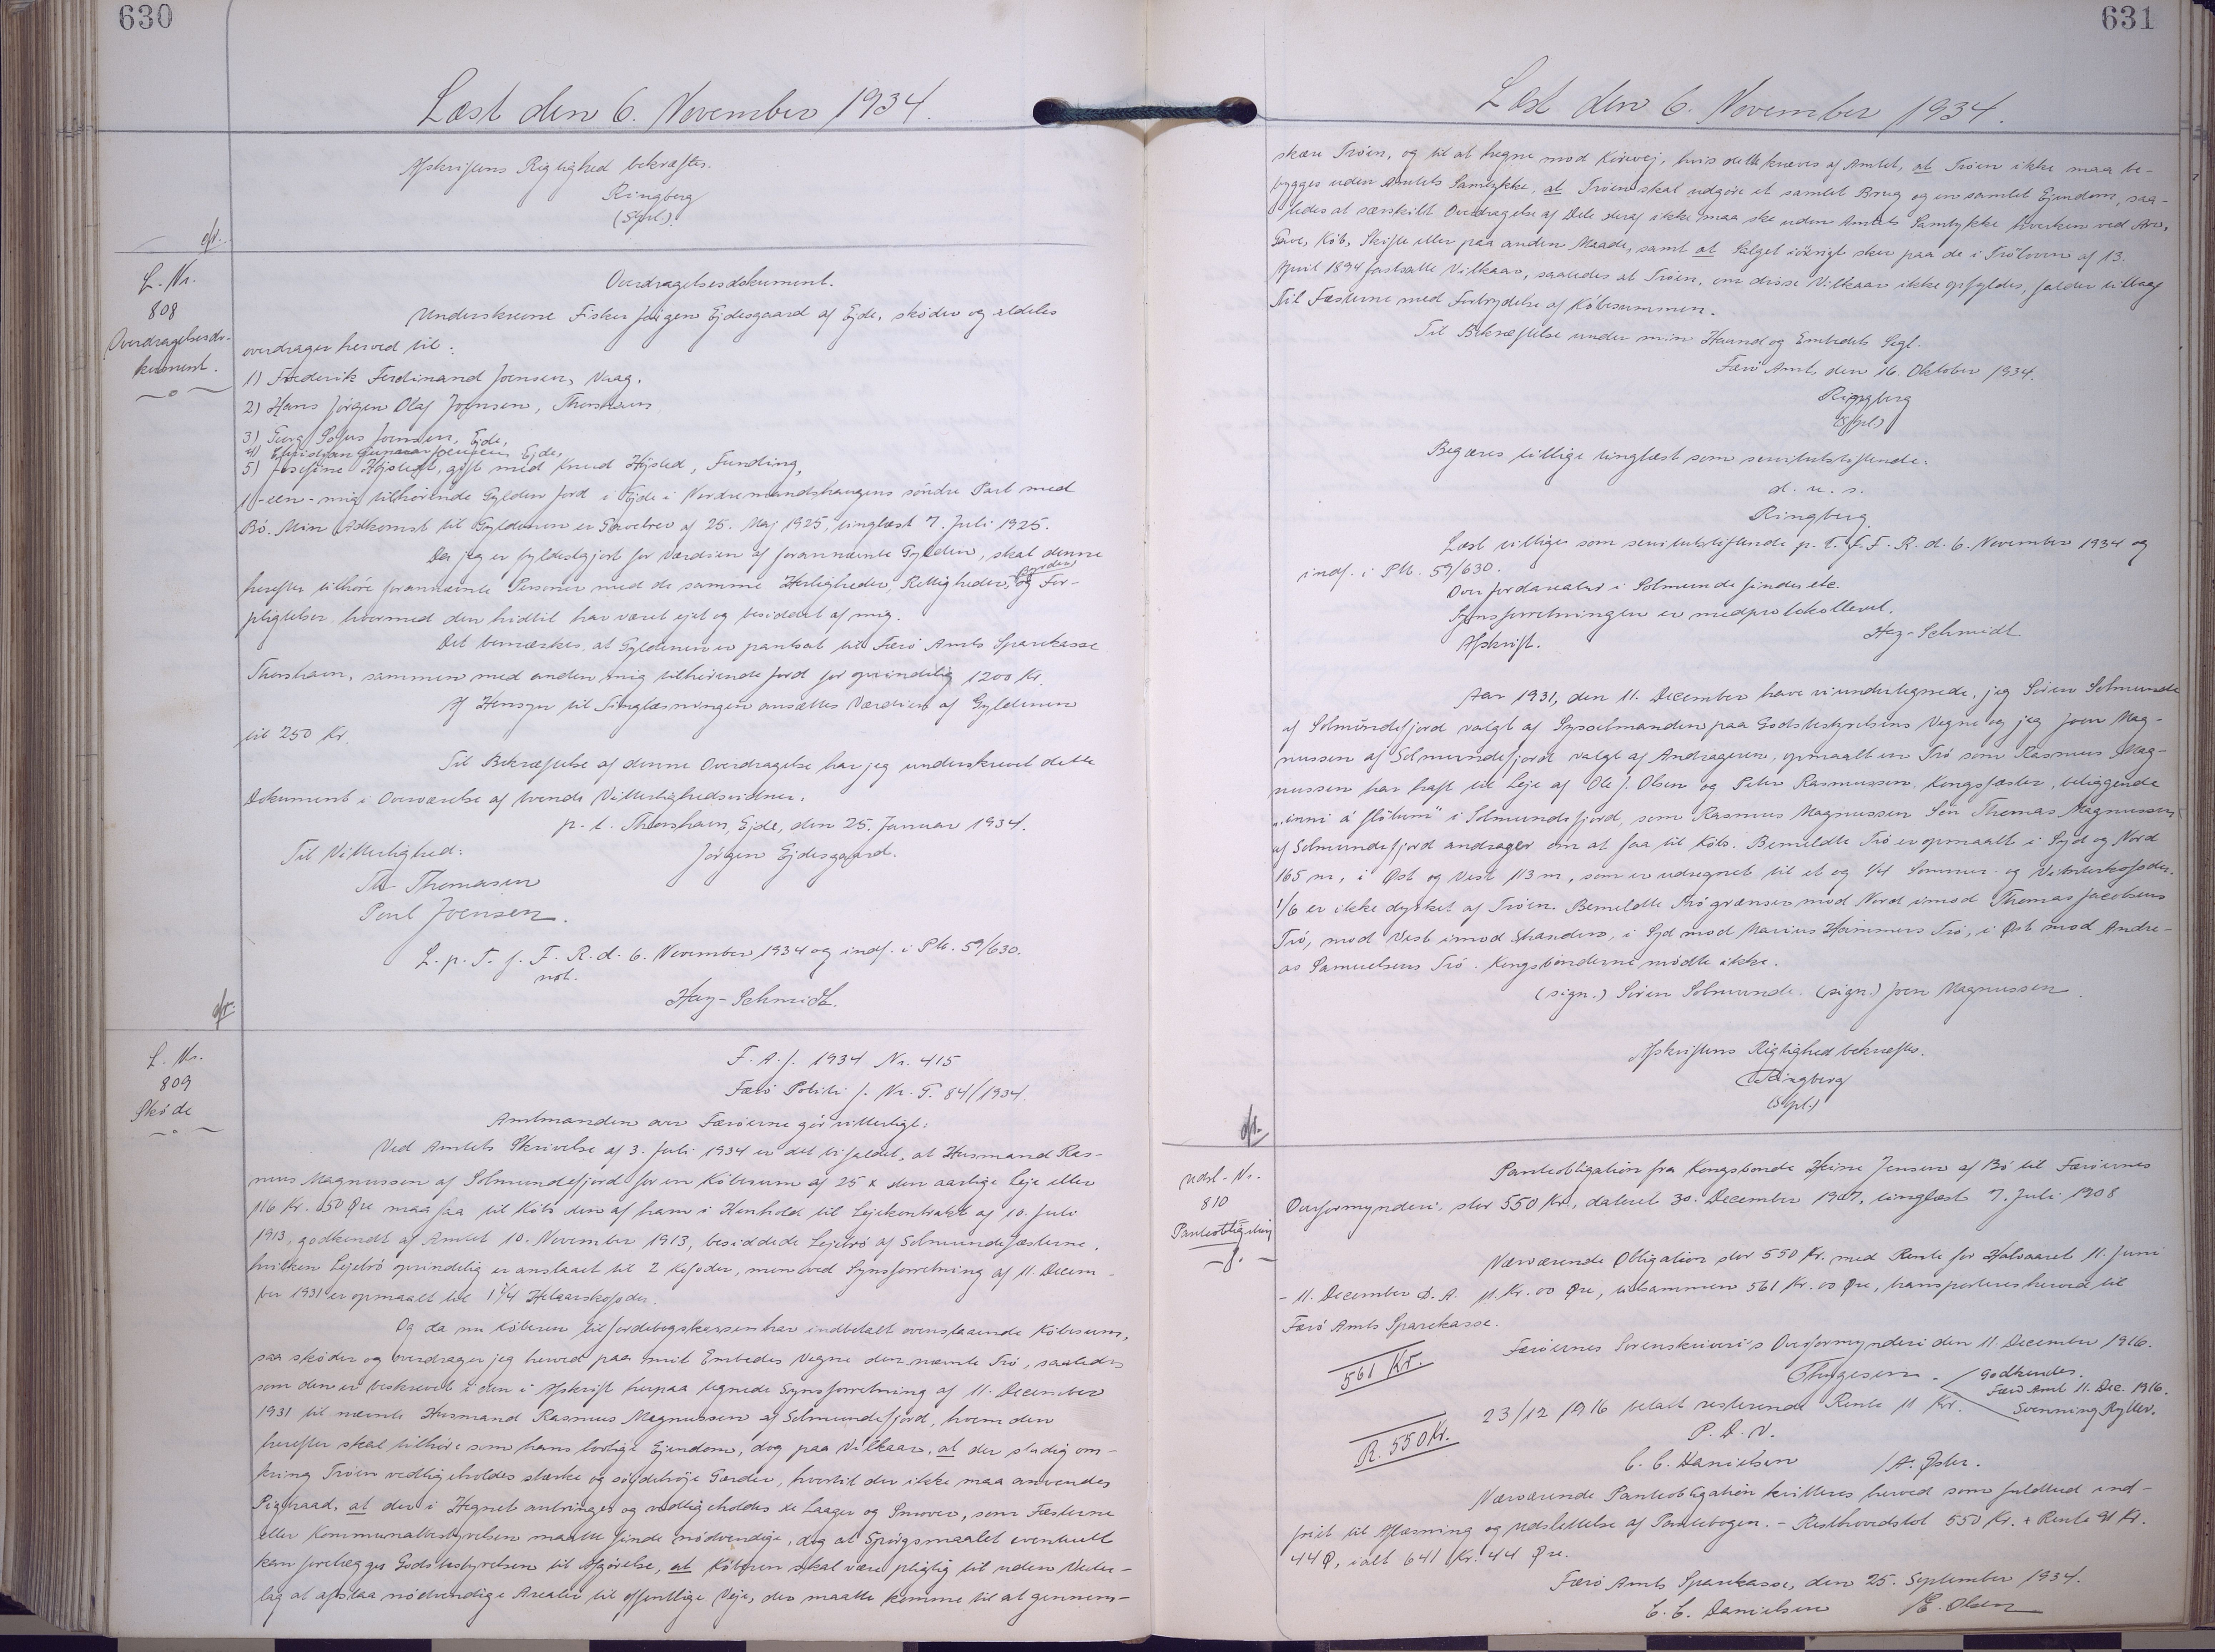 630
Læst den 6. November 1934.
Afskriftens Rigtighed bekræftes.
Ringberg
(Spl.)
L. Nr.
808
Overdragelsesdo-
kument.
Overdragelsesdokument.
Underskrevne Fisker Jørgen Ejdesgaard af Ejde, skøder og aldeles
overdrager herved til:
1) Frederik Ferdinand Joensen, Vaag.
2) Hans Jørgen Olaf Joensen, Thorshavn
3) Sofus Joensen, Ejde,
4) Christian Gunnar Joensen, Ejde,
5) Josefine Højsted, gift med Knud Højsted, Funding,
1 -een- mig tilhørende Gylden Jord i Ejde i Nordremandshaugens søndre Part med
Bö. Min Adkomst til Gyldenen er Gavebrev af 25. Maj 1925, tinglæst 7. Juli 1925.
Da jeg er fyldestgjort for Værdien af forannævnte Gylden, skal denne
herefter tilhöre forannævnte Personer med de samme Herligheder, Rettigheder, Byrder og For-
pligtelser, hvormed den hidtil har været ejet og besiddet af mig.
Det bemærkes, at Gyldenen er pantsat til Færö Amts Sparekasse
Thorshavn, sammen med anden mig tilhörende Jord for oprindelig 1200 Kr.
Af Hensyn til Tinglæsningen ansættes Værdien af Gyldenen
til 250 Kr.
Til Bekræftelse af denne Overdragelse har jeg underskrevet dette
Dokument i Overværelse af tvende Vitterlighedsvidner.
p. t. Thorshavn, Ejde, den 25. Januar 1934.
Til Vitterlighed: Jörgen Ejdesgaard.
Th. Thomasen
Poul Joensen.
L. p. T. f. F. R. d. 6. November 1934 og indf. i Pb. 59/630.
not.
Hey-Schmidt.
L. Nr.
809
Sköde
F. A. J. 1934 Nr. 415
Færö Politi J. Nr. T. 84/1934.
Amtmanden over Færöerne gör vitterligt:
Ved Amtets Skrivelse af 3. Juli 1934 er det bifaldet, at Husmand Ras-
mus Magnussen af Solmundefjord for en Köbesum af 25 x den aarlige Leje eller
116 Kr. 50 Øre maa faa til Köbs den af ham i Henhold til Lejekontrakt af 10. Juli
1913, godkendt af Amtet 10. November 1913, besiddede Lejetrö af Solmundefæsterne,
hvilken Lejetrö oprindelig er anslaaet til 2 Kofoder, men ved Synsforretning af 11. Decem-
ber 1931 er opmaalt til 1 1/4 Helaarskofoder.
Og da nu Köberen til Jordebogskassen har indbetalt ovenstaaende Köbesum,
saa sköder og overdrager jeg herved paa mit Embedes Vegne den nævnte Trö, saaledes
som den er beskrevet i den i Afskrift herpaa tegnede Synsforretning af 11. December
1931 til nævnte Husmand Rasmus Magnussen af Solmundefjord, hvem den
herefter skal tilhöre som hans lovlige Ejendom, dog paa Vilkaar, at der stadig om-
kring Tröen vedligeholdes stærke og söjdehöje Gærder, hvortil der ikke maa anvendes
Pigtraad, at der i Hegnet anbringes og vedligeholdes de Laager og Smover, som Fæsterne
eller Kommunalbestyrelsen maatte finde nödvendige, dog at Spörgsmaalet eventuelt
kan forelægges Godsbestyrelsen til Afgörelse, at Köberen skal være pligtig til uden Veder-
lag at afstaa nödvendige Arealer til offentlige Veje, der maatte komme til at gennem-
631
Læst den 6. November 1934.
skære Tröen, og til at hegne mod Körevej, hvis dette kræves af Amtet, at Tröen ikke maa be-
bygges uden Amtets Samtykke, at Tröen skal udgöre et samlet Brug og en samlet Ejendom, saa-
ledes at særskilt Overdragelse af Dele deraf ikke maa ske uden Amtets Samtykke hverken ved Arv,
Gave, Köb, Skifte eller paa anden Maade, samt at Salget iövrigt sker paa de i Tröloven af 13.
April 1894 fastsatte Vilkaar, saaledes at Tröen, om disse Vilkaar ikke opfyldes, falder tilbage
til Fæsterne med Fortrydelse af Köbesummen.
Til Bekræftelse under min Haand og Embedets Segl.
Færö Amt, den 16. Oktober 1934.
Ringberg
(Spl.)
Begæres tillige tinglæst som servitutstiftende.
d. u. s.
Ringberg.
Læst tillige som servitutstiftende p. T. f. F. R. d. 6. November 1934 og
indf. i Pb. 59/630.
Over Jordarealet i Solmunde findes ete
Synsforretningen er medprotokolleret.
Hey-Schmidt
Afskrift.
Aar 1931, den 11. December have vi undertegnede, jeg Sören Solmunde
af Solmundefjord valgt af Sysselmanden paa Godsbestyrelsens Vegne og jeg Joen Mag-
nussen af Solmundefjord valgt af Andrageren, opmaalt en Trö som Rasmus Mag-
nussen har haft til Leje af Ole J. Olsen og Peter Rasmussen, Kongsfæster, beliggende
„inni á fløtum" i Solmundefjord, som Rasmus Magnussen Sön Thomas Magnussen
af Solmundefjord andrager om at faa til Köbs. Bemeldte Trö er opmaalt i Syd og Nord
165 m, i Øst og Vest 113 m, som er udregnet til et og 1/4 Sommer- og Vinterkofoder.
1/6 er ikke dyrket af Tröen. Bemeldte Trö grænser mod Nord imod Thomas Jacobsens
Trö, mod Vest imod Stranden, i Syd mod Marius Hammers Trö, i Øst mod Andre-
as Samuelsens Trö. Kongsbönderne mödte ikke.
(sign.) Sören Solmunde. (sign.) Joen Magnussen.
Afskriftens Rigtighed bekræftes.
Ringberg
(Spl.)
Udsl-Nr.
810
Panteobligation
Panteobligation fra Kongsbonde Heine Jensen af Bö til Færöernes
Overformynderi, stor 550 Kr., dateret 30. December 1907, tinglæst 7. Juli 1908
Nærværende Obligation stor 550 Kr. med Rente for Halvaaret 11. Juni
- 11. December d. A. 11 Kr. 00 Øre, tilsammen 561 Kr. 00 Øre, transporteres herved til
Færö Amts Sparekasse.
Færöernes Sorenskriveri's Overformynderi den 11. December 1916.
561 Kr.
Thygesen.
Godkendes.
Færö Amt 11. Dec. 1916.
Svenning Rytter.
23/12 1916 betalt resterende Rente 11 Kr.
R. 550 Kr.
P. D. V.
C. C. Danielsen /A. Øster.
Nærværende Panteobligation kvitteres herved som fuldtud ind-
friet til Aflæsning og Udslettelse af Pantebogen. - Resthovedstol 550 Kr. + Rente 91 Kr.
44 Ø, ialt 641 Kr. 44 Øre.
Færö Amts Sparekasse, den 25. September 1934.
C. C. Danielsen /E. Olsen